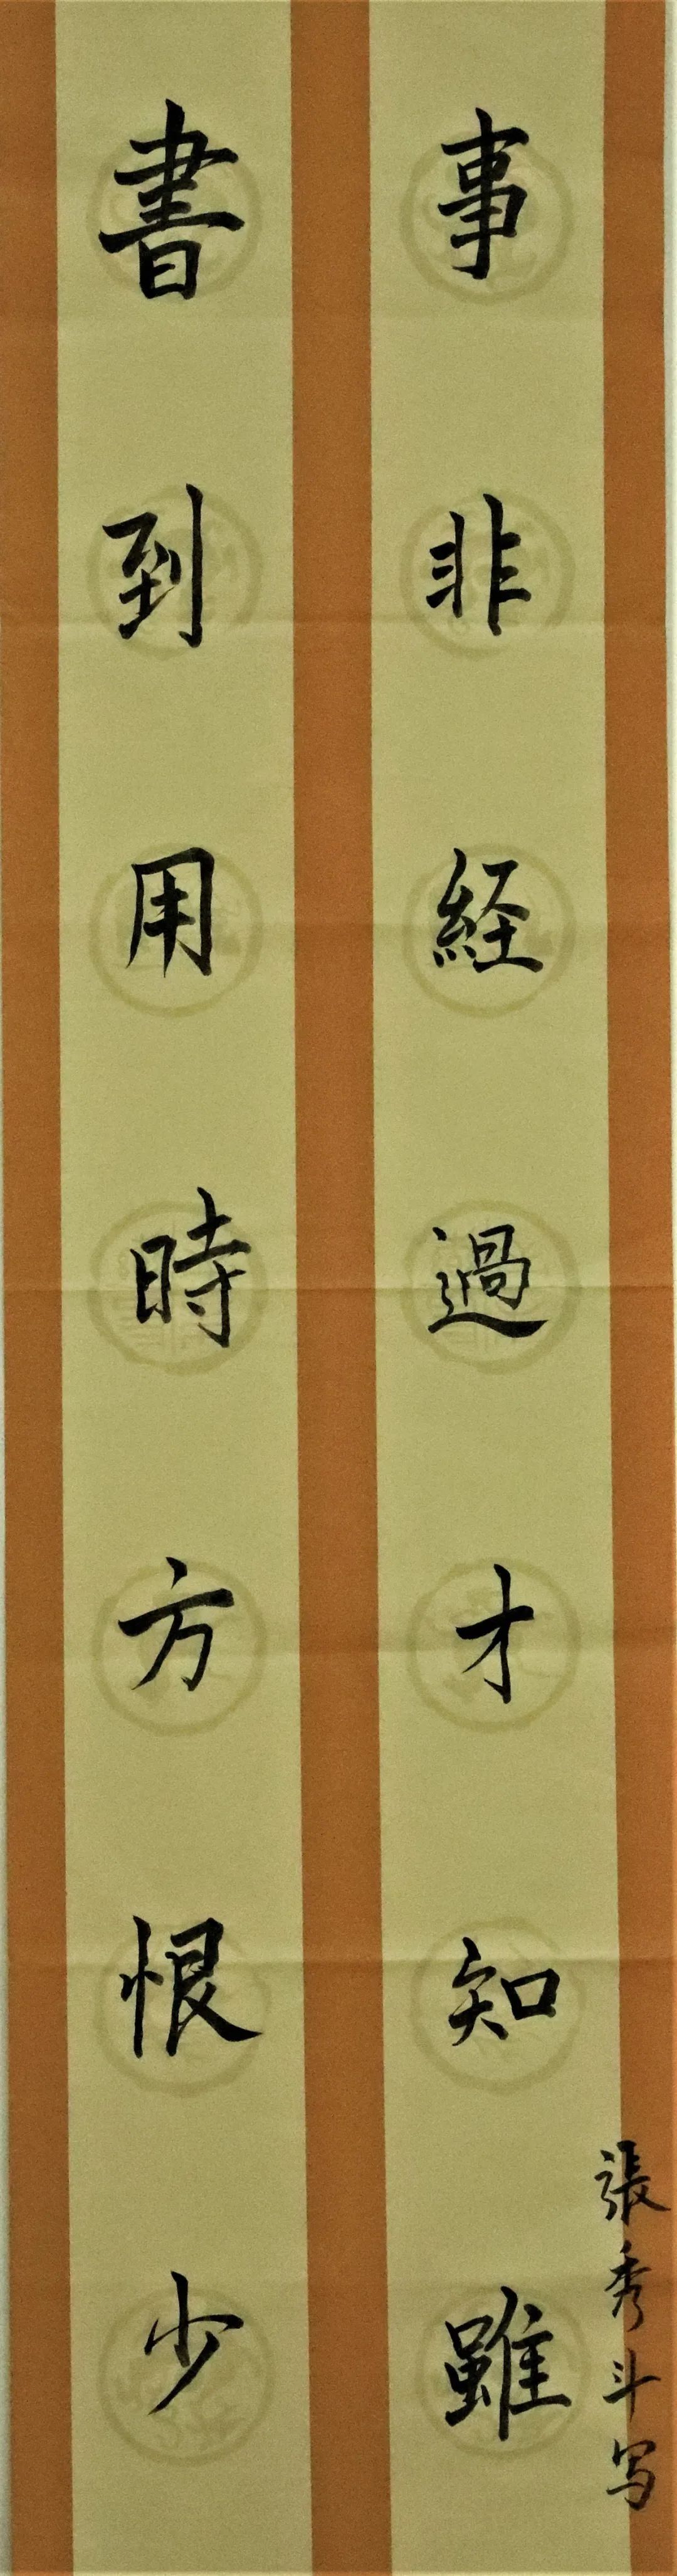 事非経過才知雖
書到用時方恨少
張秀斗写